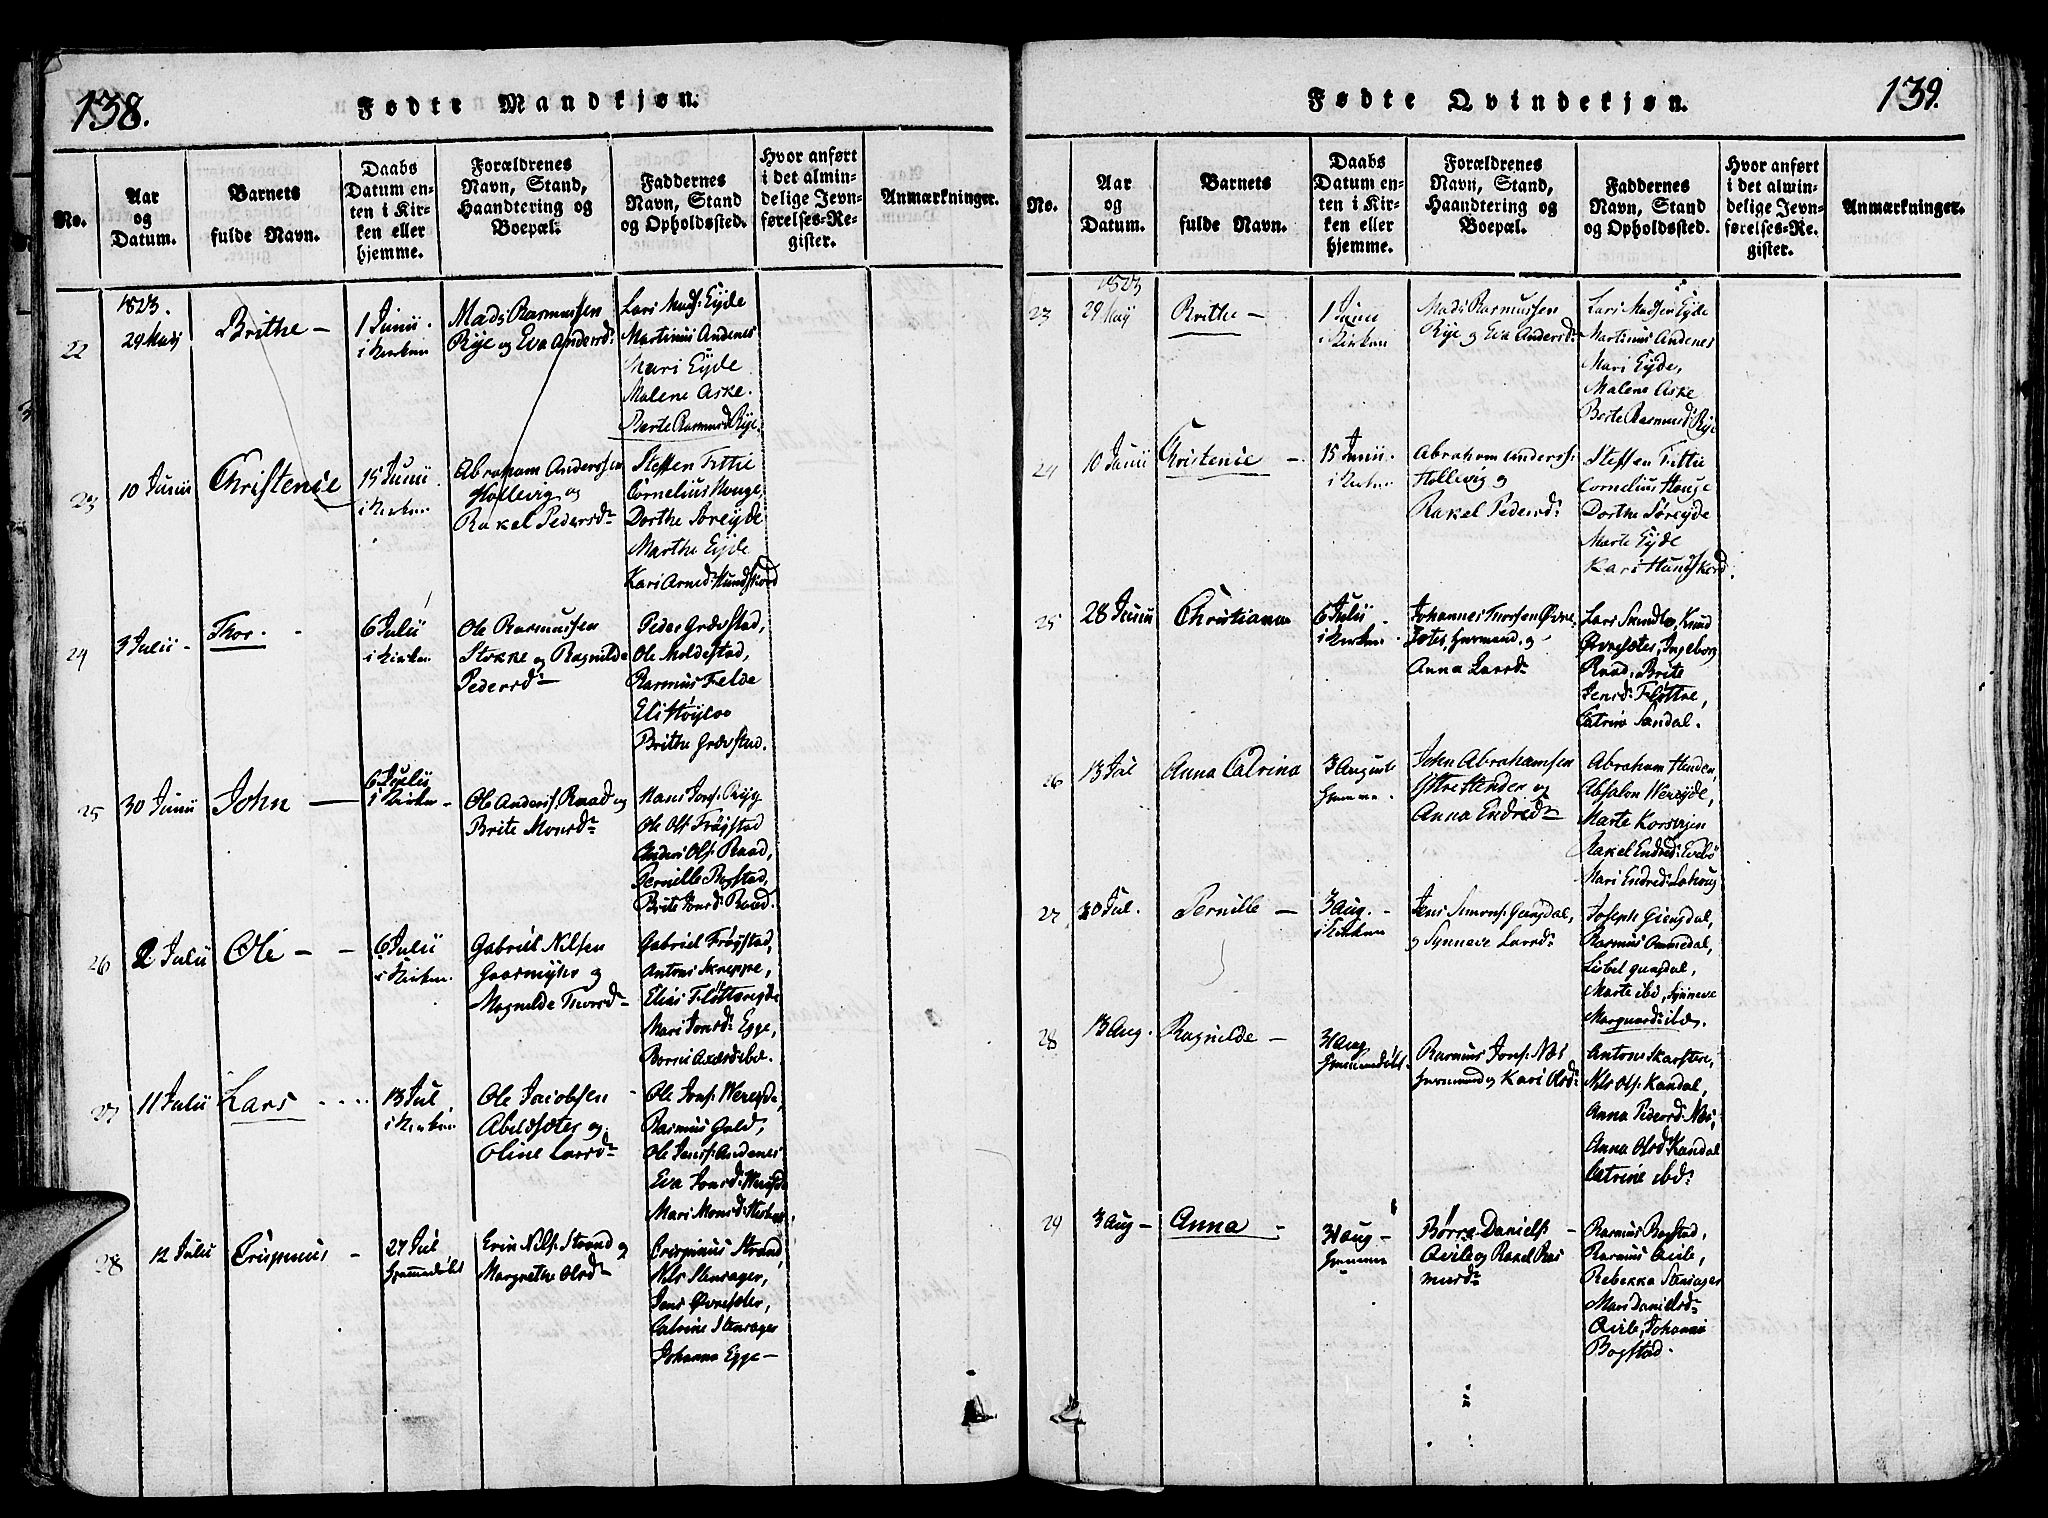 138.
Fødte Mandkjøn.
No.
Aar
og
Datum.
Barnets
fulde Navn.
Daabs
Datum en-
ten i Kir-
ken eller
hjemme.
Forældrenes
Navn, Stand,
Haandtering og
Boepæl.
Faddernes
Navn, Stand
og Opholdssted.
Hvor anført
i det almin-
delige Jevn-
førelses-Re-
gister.
Anmærkninger.
22
1823.
29 Maij
Brithe —
1 Junii.
i Kirken
Mads Rasmussen
Rye og Eva Andersd:
Lars Mads: Eyde
Martinus Andenes
Mari Eyde
Malene Aske.
Berte Rasmusd Rye.
23
10 Junii
Christense
15 Junii.
i Kirken
Abraham Anderssen
Hollevig og
Rakel Pedersdr
Steffen Fittie
Cornelius Houge
Dorthe Søreyde
Marthe Eyde
Kari Arned: Hundskord
24
3 Julii -
Thor. -
6 Julii
i Kirken
Ole Rasmussen
Stokke og Ragnilde
Pedersdr
Peder Grævstad,
Ole Moldestad,
Rasmus Felde
Eli Høyloe
Brithe Grævstad.
25
30 Junii
John —
6 Julii
i Kirken -
Ole Anders: Raad og
Brite Monsdr
Hans Jons: Ryg
Ole Ols: Frøystad
Anders Ols: Raad,
Pernille Rygstad,
Brite Jonsd: Raad.
26
2 Julii
Ole - -
6 Julii
i Kirken.
Gabriel Nilsen
Gaasmyhr og
Magnilde Thorsdr
Gabriel Frøystad,
Antoni Skreppe,
Elias Fløttereyde
Mari Jonsd: Egge,
27
11 Julii
Lars
13 Jul
i Kirken
Ole Jacobsen
Abildsæter og
Oline Larsdr
Ole Jons: Wereyde,
Rasmus Gald,
Ole Jenss: Andenes
Eva Jonsd: Wereyde
28
12 Julii
Crispinus -
27 Jul
Hjemmedøbt
Erin Nils: Strand og
Margrethe Olsdr
Crispinus Strand,
Nils Stensager,
Jens Øvresæter,
Catrine Stensager
Johanna Egge —
139.
Fødte Qvindekjøn.
No.
Aar
og
Datum.
Barnets
fulde Navn.
Daabs
Datum en-
ten i Kir-
ken eller
hjemme.
Forældrenes
Navn, Stand,
Haandtering og
Boepæl.
Faddernes
Navn, Stand
og Opholdssted.
Hvor anført
i det almin-
delige Jevn-
førelses-Re-
gister.
Anmærkninger.
23
1823
29 Maij
Brithe —
1 Junii
i Kirken
Mads Rasmussen
Rye og Eva Andersd:
Lars Madsen Eyde
Martinus Andenes
Mari Eyde,
Malene Aske
Berte Rasmusd: Rye
24
10 Junii
Christense -
15 Junii.
i Kirken
Abraham Anderss:
Hollevig og
Rakel Pedersd:
Steffen Fittie
Cornelius Houge
Dorthe Søreyde
Marte Eyde
Kari Hundskord.
25
28 Junii
Christiana
6 Julii -
i Kirken
Johannes Thorsen Øvre
Anna Larsdr
Øvresæter, Ingeborg
Raad, Brite
Jensd: Fløttre,
Catrine Sandal.
26
13 Jul
Anna Catrina
3 August
Hjemme
John Abrahamsen
Yttre Henden og
Anna Endredr
Abraham Henden,
Absalon Wereyde,
Marte Korsvejen
Rakel Endred: Evebø
27
20 Jul.
Pernille —
3 Aug. -
i Kirken
Jens Simons: Gengdal,
og Synneve Larsdr
Joseph Giengdal,
Rasmus Ommedal,
Lisbet Gengdal,
Marte ibd, Synneve
28
13 Aug.
Ragnilde —
31 Aug
Hjemmedøbt.
Rasmus Jons: Nes
Huusmand og Kari Olsd:
Nils Ols: Kandal,
Anna Pedersd: Nes,
Anna Olsd Kandal
Catrine ibd:
29
3 Aug —
Anna -
31 Aug -
Hjemme
Børre Daniels: -
Qvile og Rakel Ras
musdr
Rasmus Bogstad,
Rasmus Qvile,
Rebekka Stensager
Mari Danielsdr
Qvile, Johanna
Bogstad.